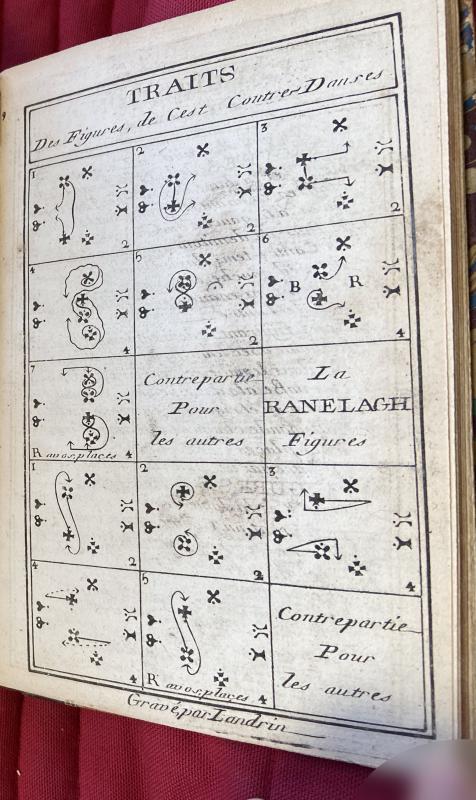 TRAITS
Des Figures, de Cest Contrer Danses
1
2
2
2
3
2
4
4
5
2
6
B R
4
7
R avos, places 4
Contrepartie
Pour
les autres
La
RANELAGH
Figures
1
2
2
2
3
4
4
4
5
R avos, places 4
Contrepartie
Pour
les autres
Gravé, par Landrin